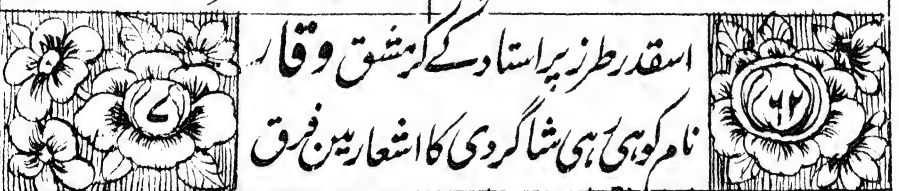 ۶۲
اسقدر طرز پر استاد کے کر مشق وقار
نام کو ہی ہی شاگردی کا اشعار مین فرق
۷